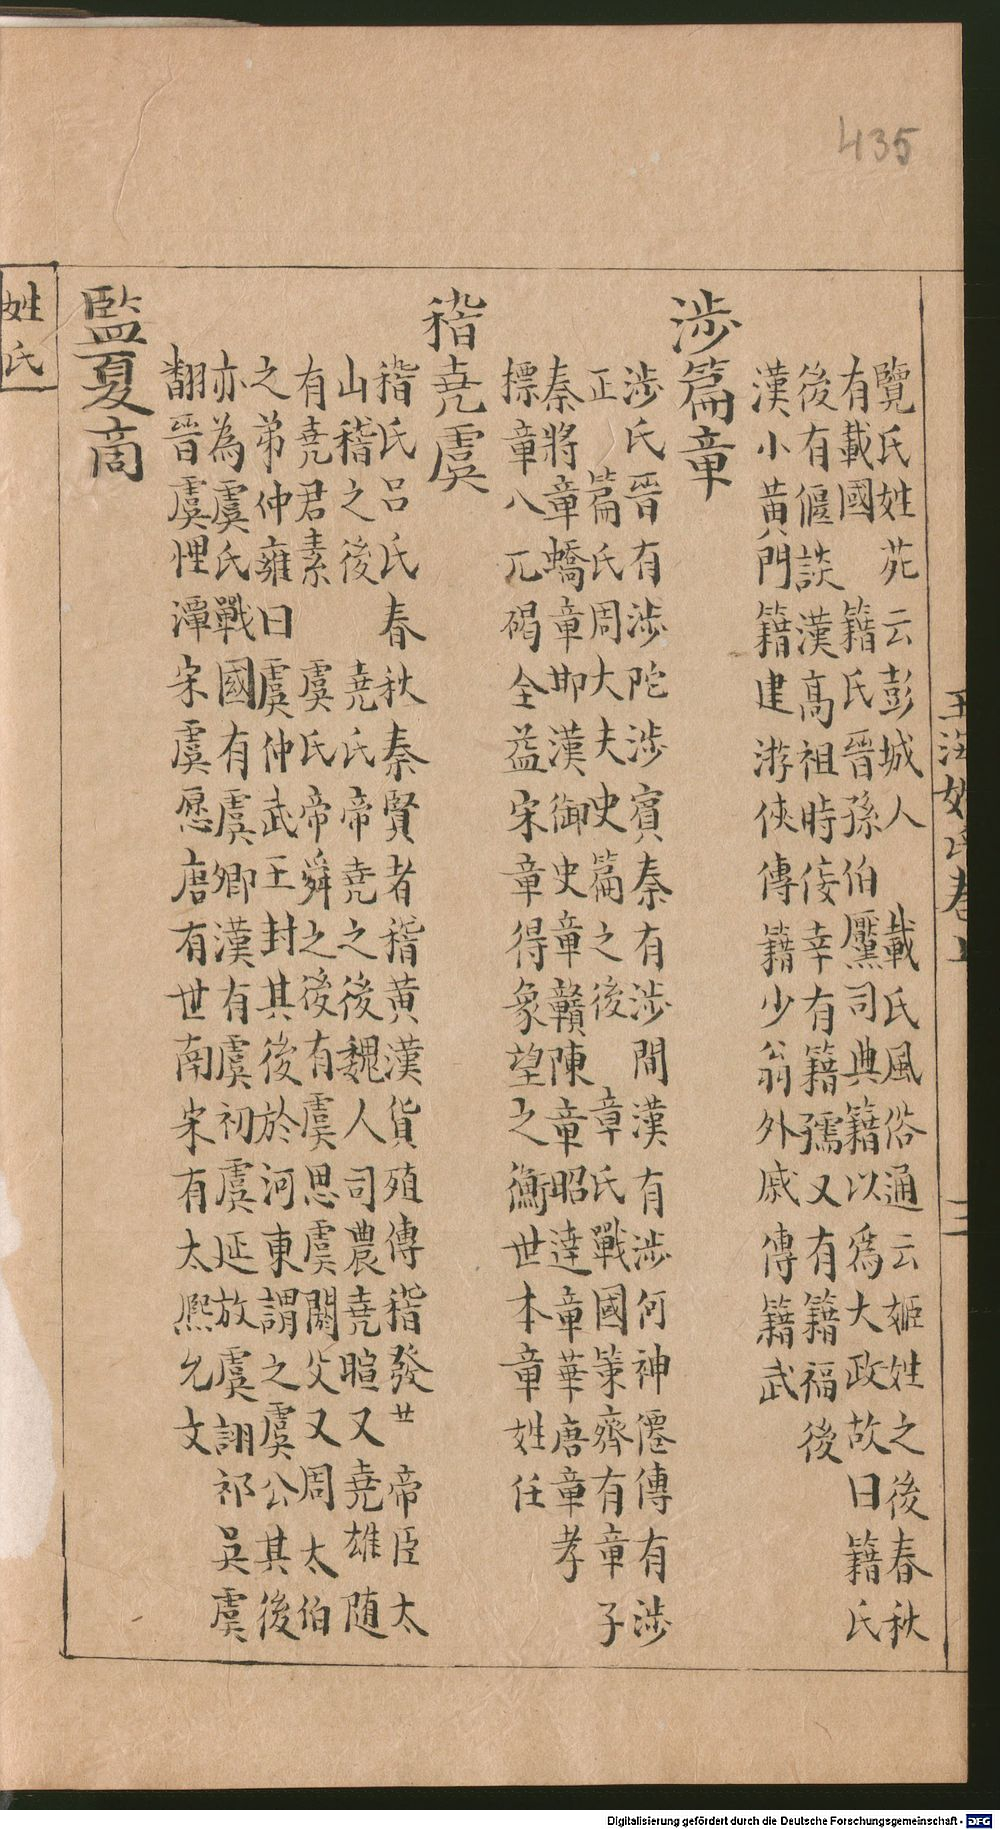 435
覽氏姓苑云彭城人 載氏風俗通云姬姓之後春秋
有載國 籍氏晉孫伯黶司典籍以爲大政故曰籍氏
後有偃談漢高祖時佞幸有籍孺又有籍福後
漢小黃門籍建游俠傳籍少翁外戚傳籍武
涉篇章
涉氏晉有涉陀涉賓秦有涉間漢有涉何神僊傳有涉
正 篇氏周大夫史篇之後 章氏戰國策齊有章子
秦將章蟜章邯漢御史章贛陳章昭達章華唐章孝
摽章八元碣全益宋章得象望之衡世本章姓任
稽堯虞
稽氏呂氏春秋秦賢者稽黃漢貨殖傳稽發廿帝臣太
山稽之後 堯氏帝堯之後魏人司農堯暄又堯雄随
有堯君素 虞氏帝舜之後有虞思虞閼父又周太伯
之弟仲雍曰虞仲武王封其後於河東謂之虞公其後
亦為虞氏戰國有虞卿漢有虞初虞延放虞詡祁吳虞
翻晉虞悝潭宋虞愿唐有世南宋有太熈允文
監夏商
姓氏
玉海姓氏卷上
三
Digitalisierung gefördert durch die Deutsche Forschungsgemeinschaft - DFG